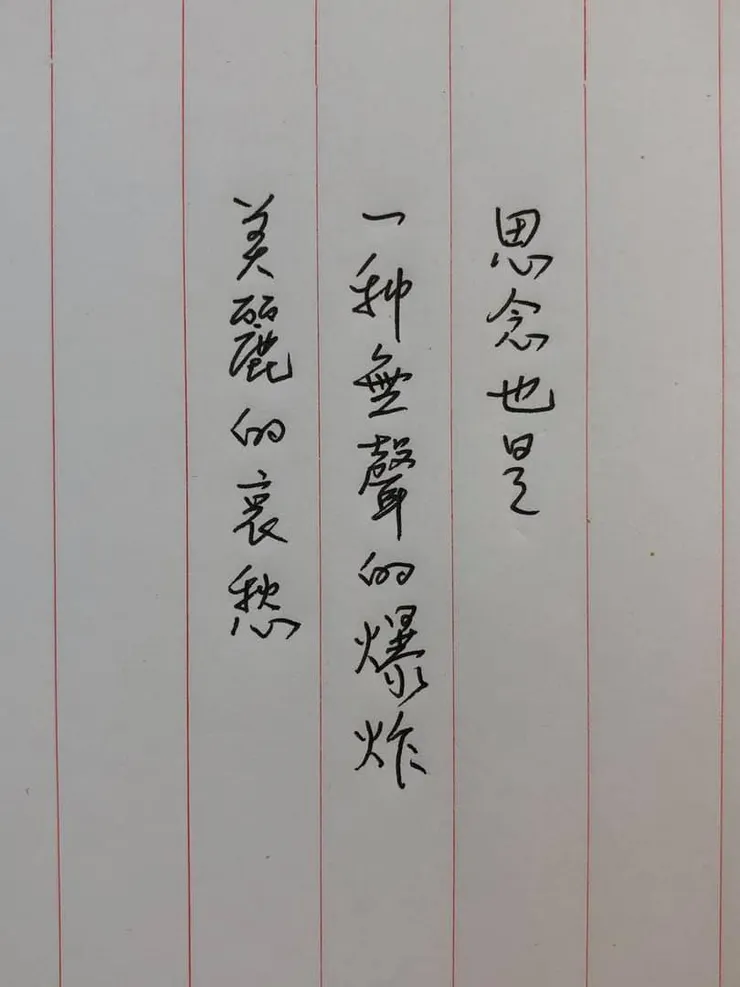 思念也是
一种無聲的爆炸
美麗的哀愁